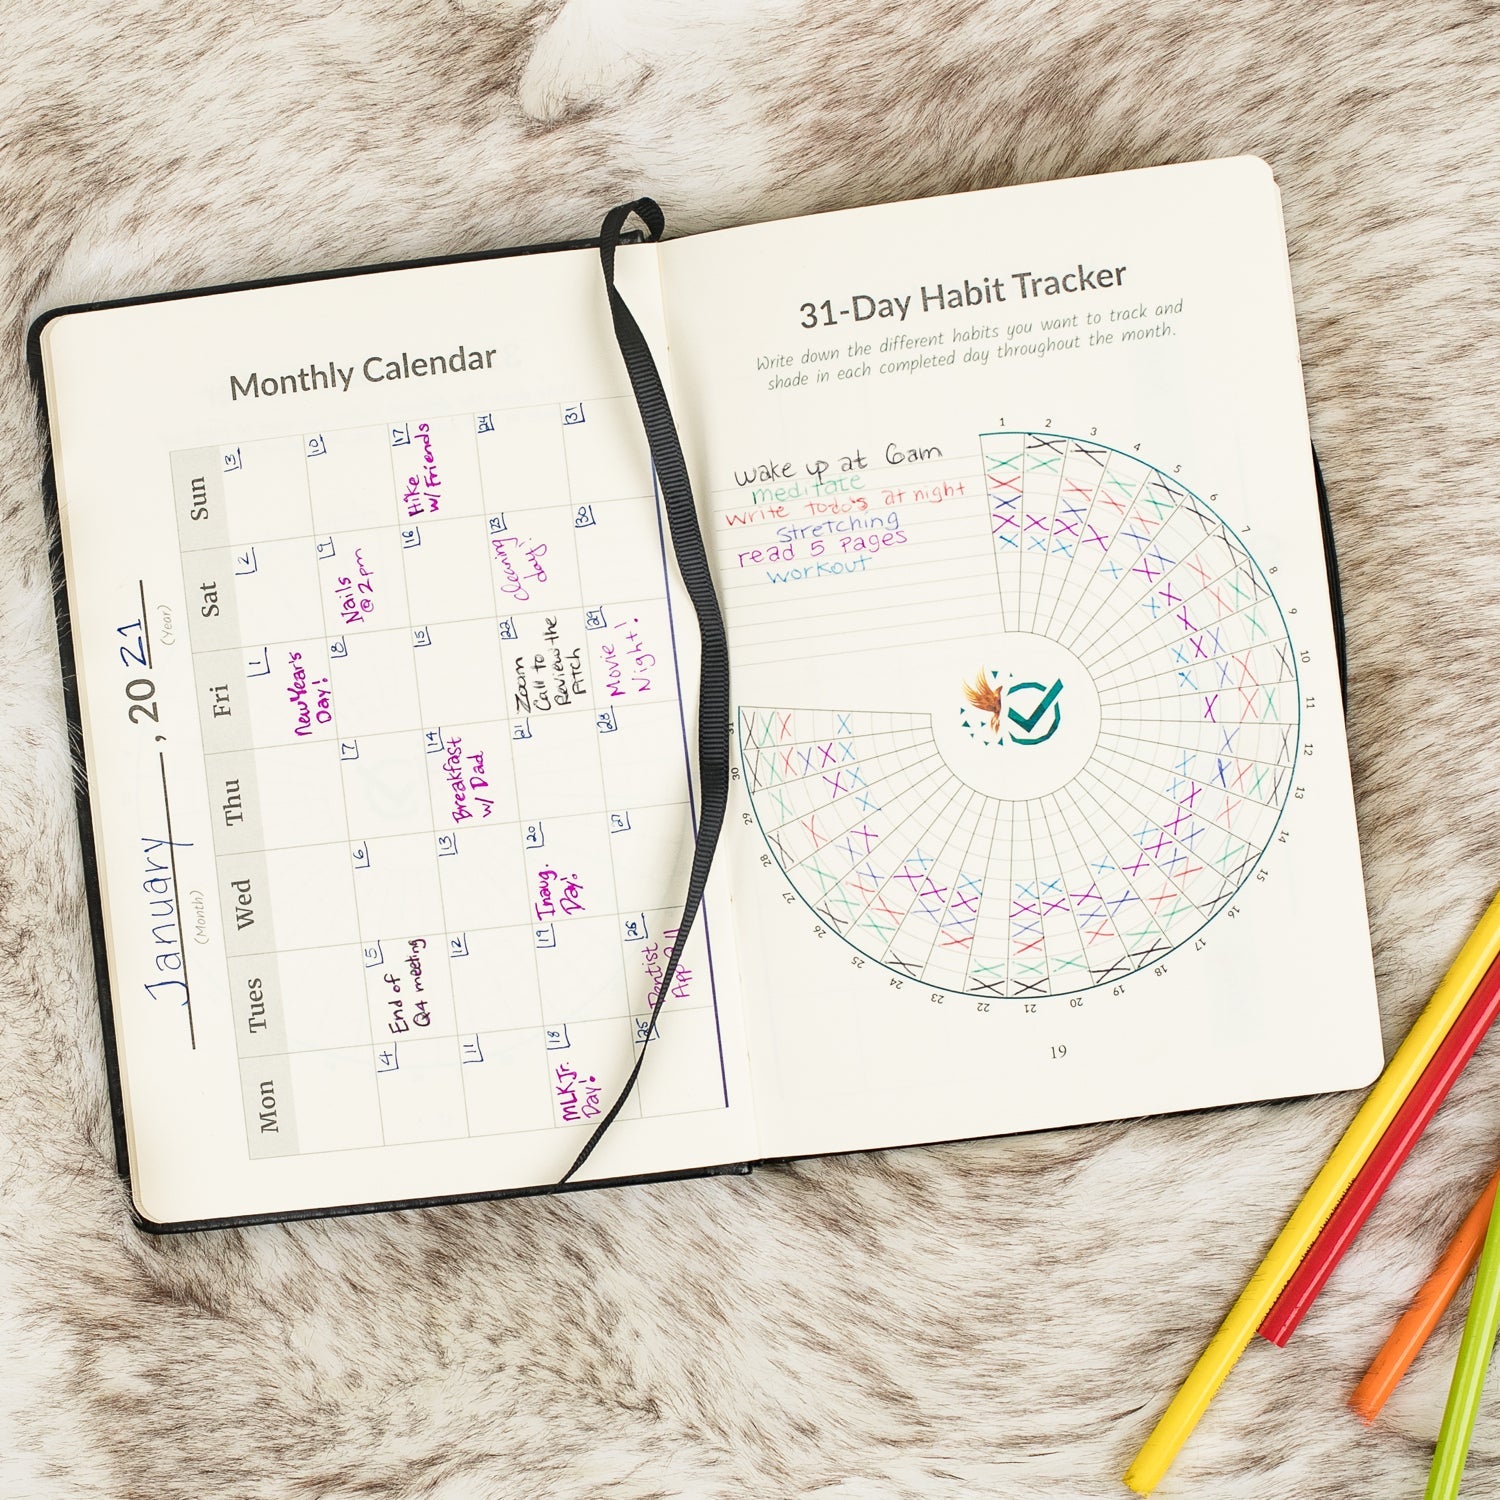 Monthly Calendar
January, 2021
(Month)
(Year)
Mon
Tues
Wed
Thu
Fri
Sat
Sun
1
New Year's
Day!
2
3
4
5
End of
Q4 meeting
6
7
8
9
Nails
@ 2pm
10
11
12
13
14
Breakfast
w/ Dad
15
16
17
Hike
w/ Friends
18
MLK Jr.
Day!
19
20
Inaug.
Day!
21
22
Zoom
Call to
Review the
Pitch
23
day!
24
25
26
27
28
29
Movie
Night!
30
31
31-Day Habit Tracker
Write down the different habits you want to track and
shade in each completed day throughout the month.
wake up at 6am
meditate
write todo's at night
stretching
read 5 pages
workout
1
2
3
4
5
6
7
8
9
10
11
12
13
14
15
16
17
18
19
20
21
22
23
24
25
26
27
28
29
30
31
19